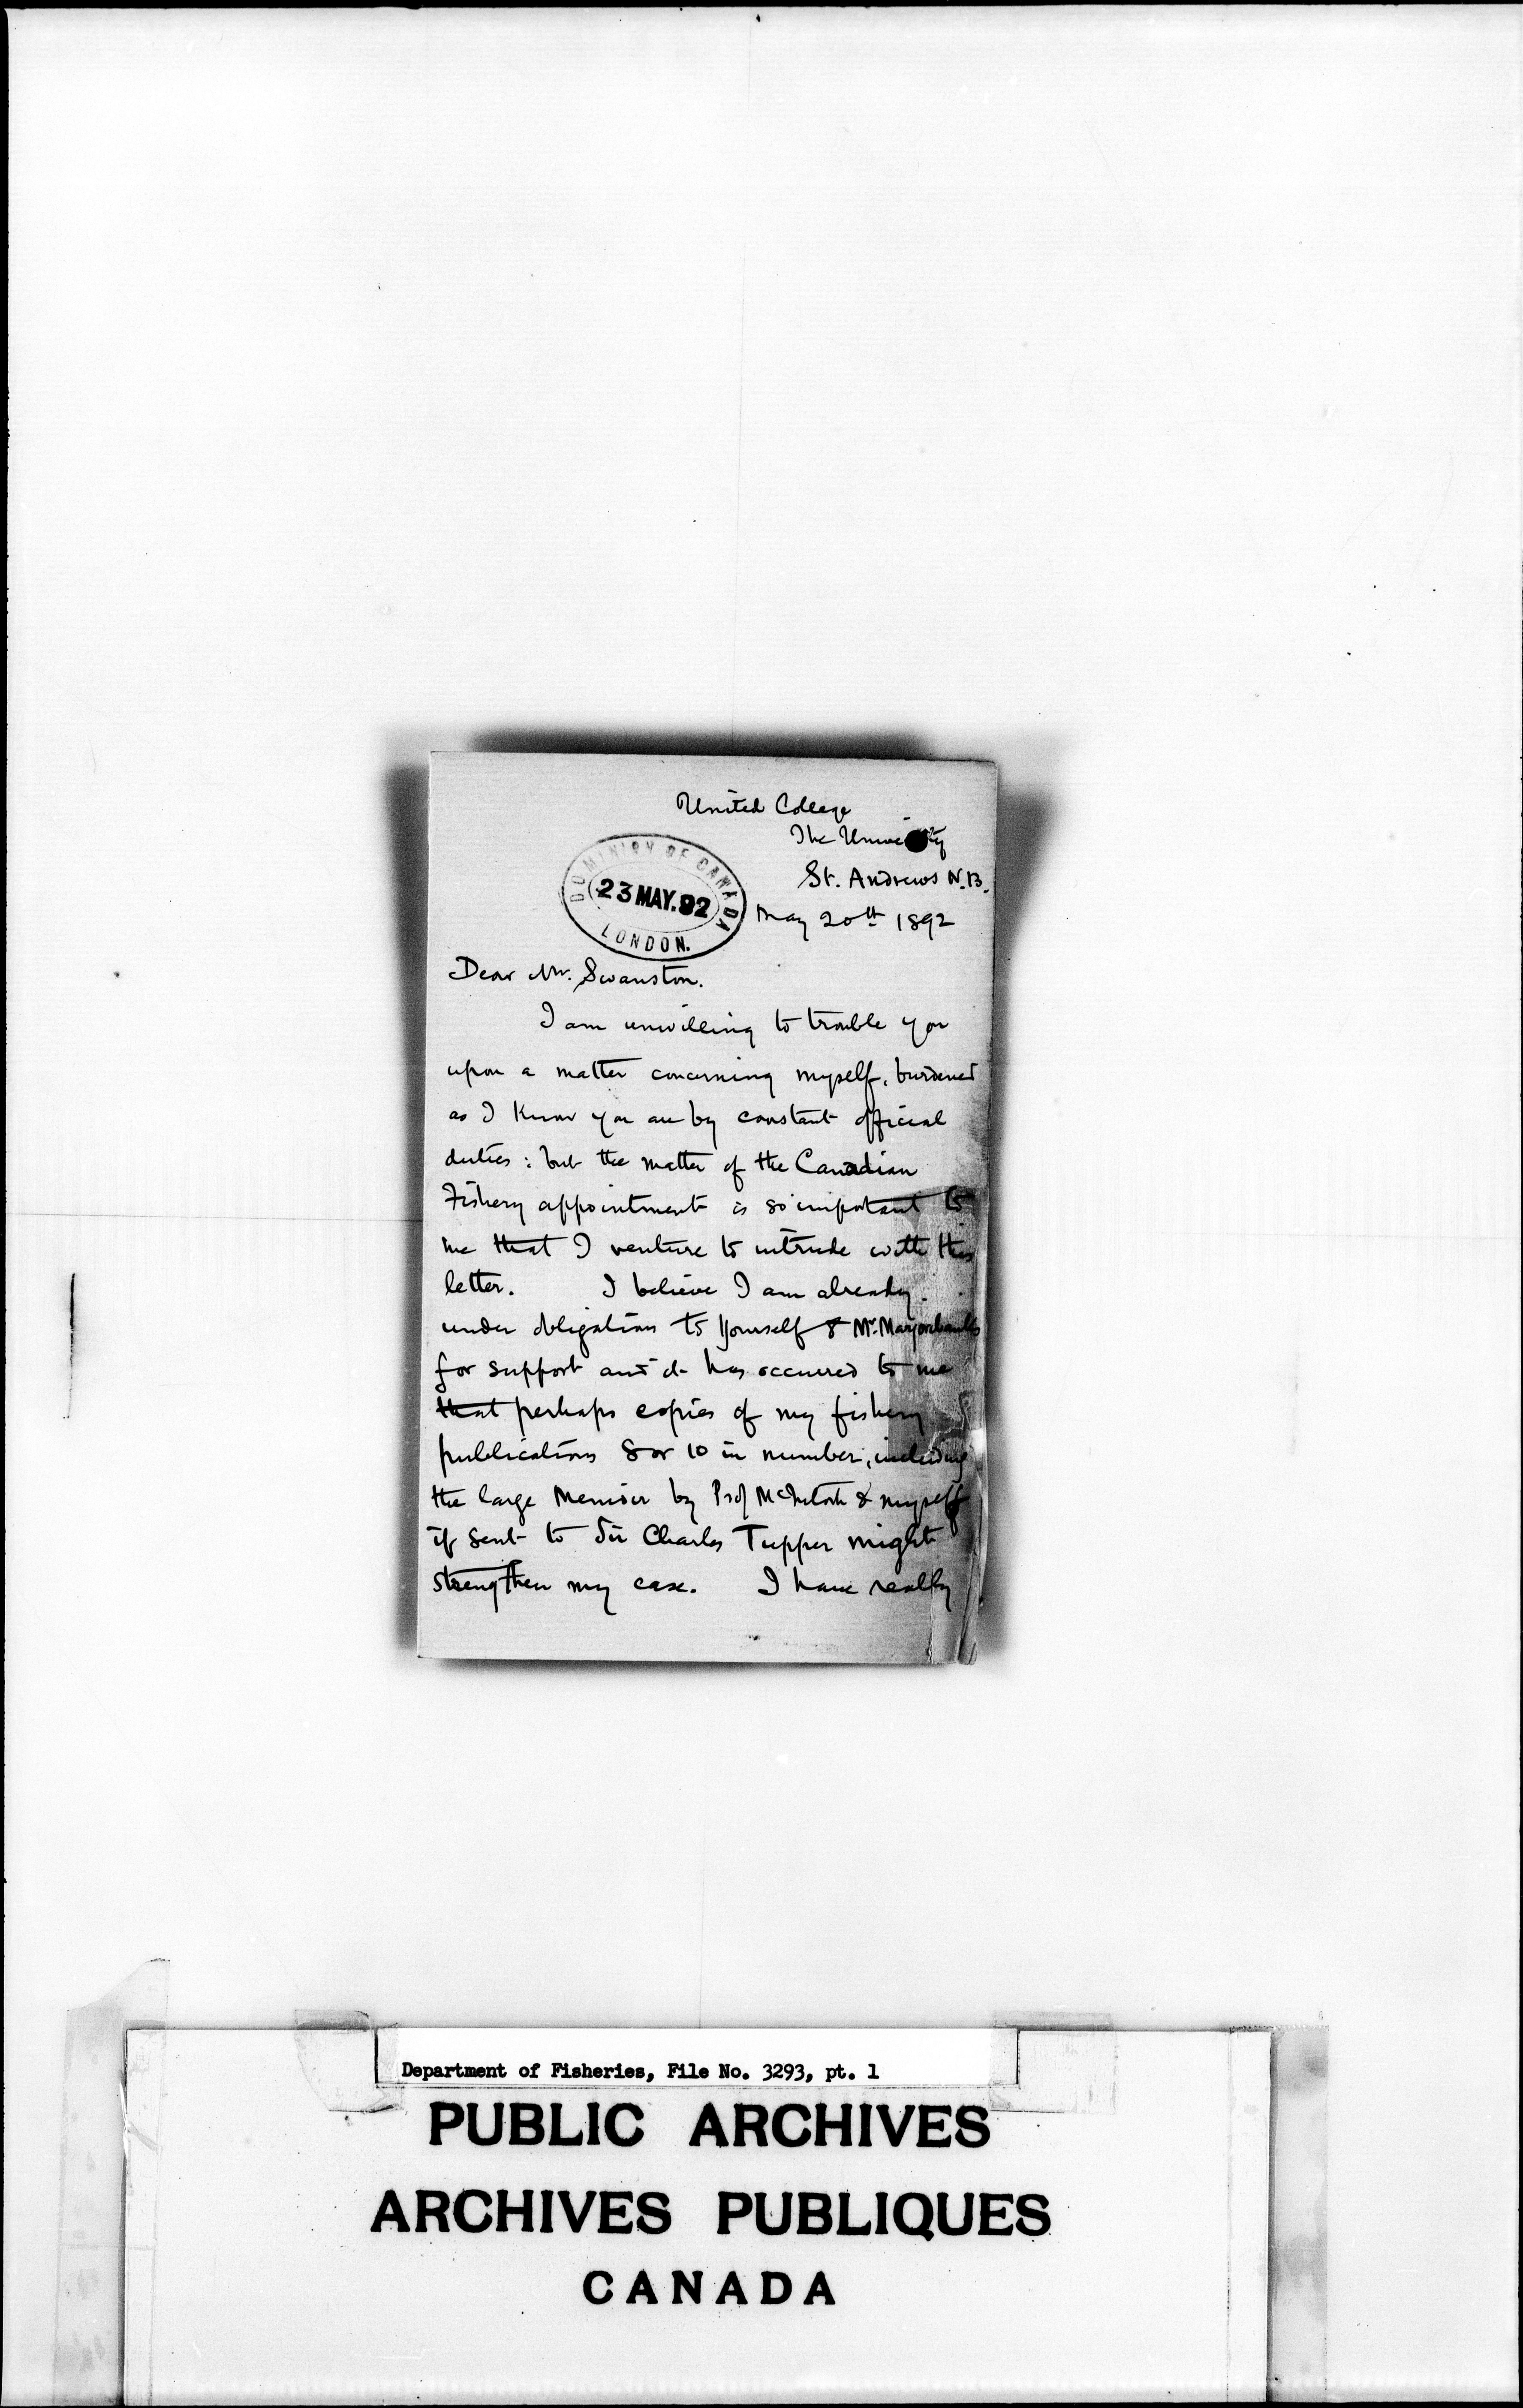 United College
The University
St. Andrews N.B.
DOMINION OF CANADA
23 MAY.92
LONDON.
May 20th 1892
Dear Mr. Swanston.
I am unwilling to trouble you
upon a matter concerning myself, burdened
as I know you are by constant official
duties: but the matter of the Canadian
Fishery appointment is so important to
me that I venture to intrude with this
letter. I believe I am already
under obligations to yourself & Mr. Marjoribanks
for support and it has occurred to me
that perhaps copies of my fishery
publications 8 or 10 in number, including
the large Memoir by Prof McIntosh & myself
if sent to Sir Charles Tupper might
strengthen my case. I have really
Department of Fisheries, File No. 3293, pt. 1
PUBLIC ARCHIVES
ARCHIVES PUBLIQUES
CANADA